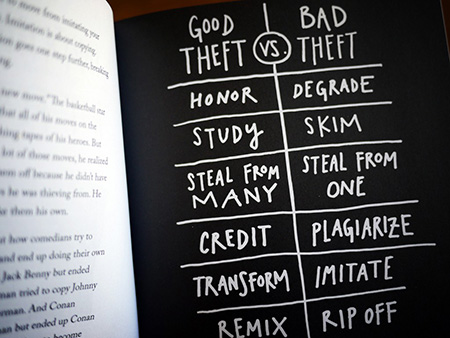 to move from imitating your
Imitation is about copying.
goes one step further, breaking
new move." The basketball star
that all of his moves on the
tapes of his heroes. But
lot of those moves, he realized
off because he didn't have
he was thieving from. He
them his own.
how comedians try to
and end up doing their own
Jack Benny but ended
man tried to copy Johnny
And Conan
man but ended up Conan
GOOD THEFT VS. BAD THEFT
HONOR DEGRADE
STUDY SKIM
STEAL FROM MANY STEAL FROM ONE
CREDIT PLAGIARIZE
TRANSFORM IMITATE
REMIX RIP OFF